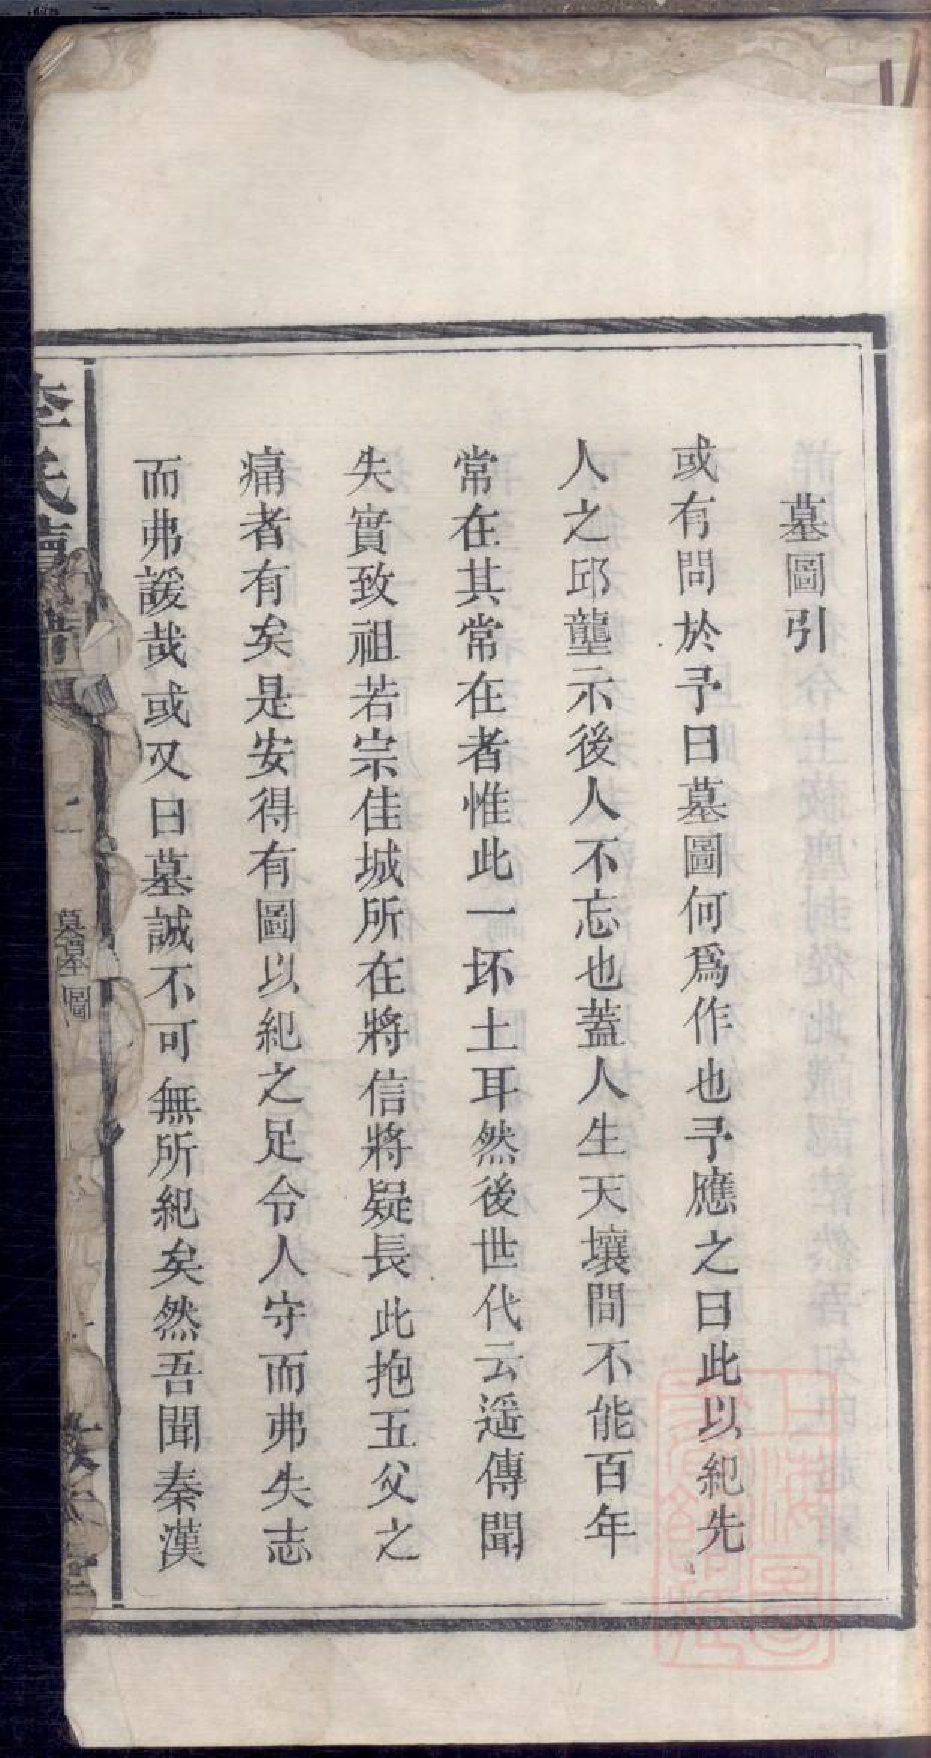 墓圖引
或有問於予曰墓圖何爲作也予應之曰此以紀先
人之邱壟示後人不忘也蓋人生天壤間不能百年
常在其常在者惟此一坏土耳然後世代云遥傳聞
失實致祖若宗佳城所在將信將疑長此抱五父之
痛者有矣是安得有圖以紀之足令人守而弗失志
而弗諼哉或又曰墓誠不可無所紀矣然吾聞秦漢
李氏續譜
墓圖